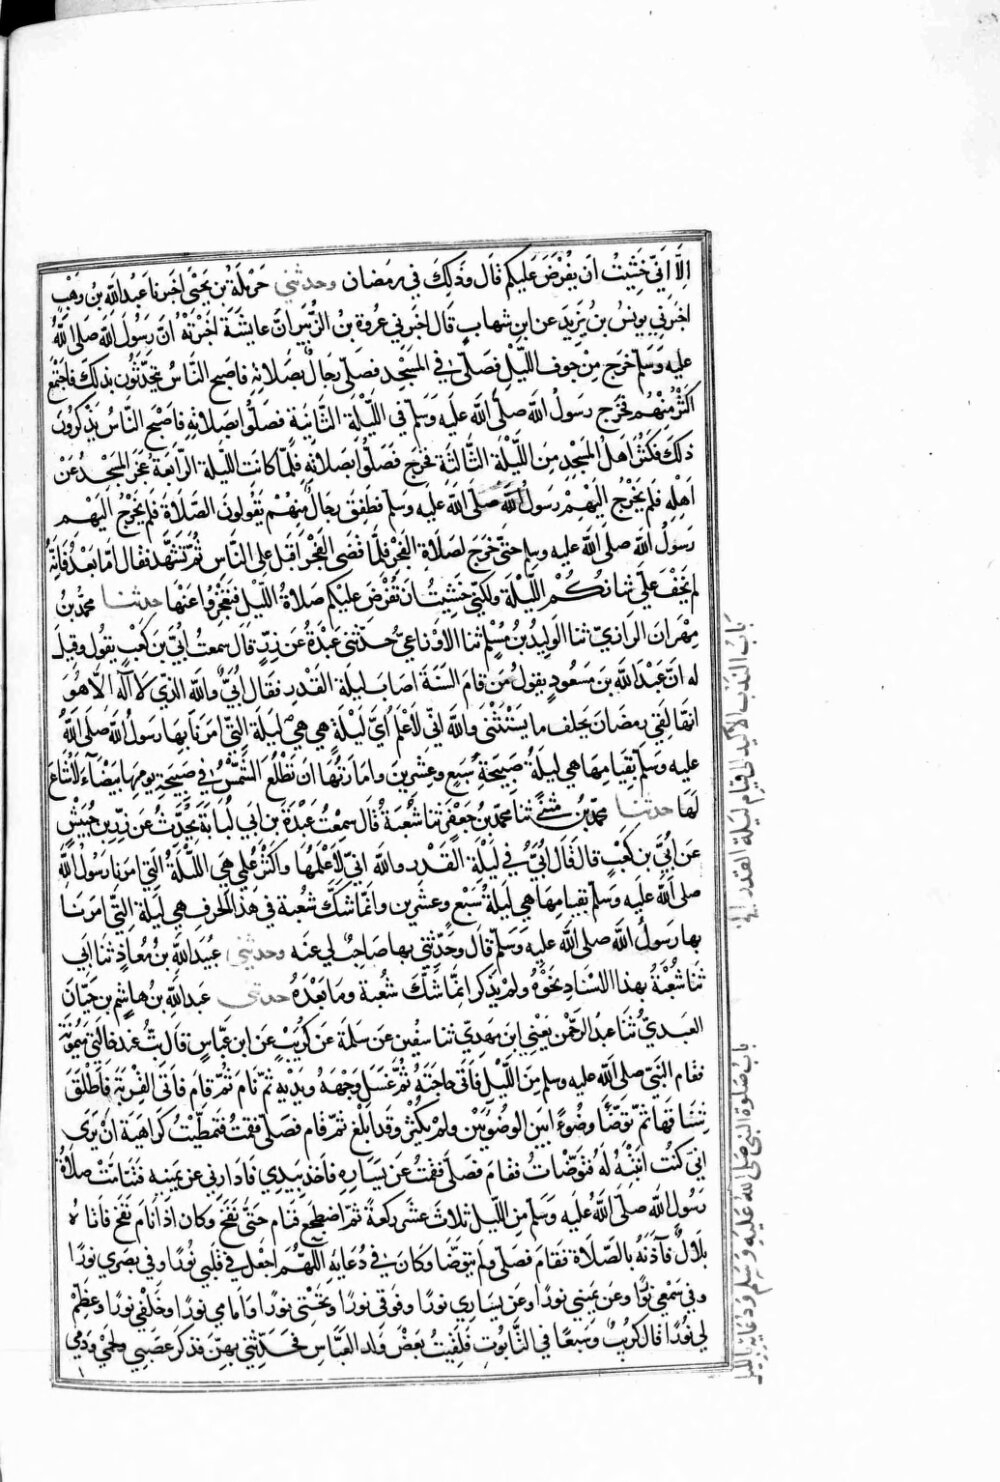 الا اني خشيت ان يفرض عليكم قال وذلك في رمضان وحدثني حرملة بن يحيى اخبرنا عبد الله بن وهب
اخبرني يونس بن يزيد عن ابن شهاب قال اخبرني عروة بن الزبير ان عايشة اخبرته ان رسول الله صلى الله
عليه وسلم خرج من جوف الليل فصلى في المسجد فصلى رجال بصلاته فاصبح الناس يتحدثون بذلك فاجتمع
اكثر منهم فخرج رسول الله صلى الله عليه وسلم في الليلة الثانية فصلوا بصلاته فاصبح الناس يذكرون
ذلك فكثر اهل المسجد من الليلة الثالثة فخرج فصلوا بصلاته فلما كانت الليلة الرابعة عجز المسجد عن
اهله فلم يخرج اليهم رسول الله صلى الله عليه وسلم فطفق رجال منهم يقولون الصلاة فلم يخرج اليهم
رسول الله صلى الله عليه وسلم حتى خرج لصلاة الفجر فلما قضى الفجر اقبل على الناس ثم تشهد فقال اما بعد فانه
لم يخف علي شانكم الليلة ولكني خشيت ان تفرض عليكم صلاة الليل فتعجزوا عنها حدثنا محمد بن
مهران الرازي ثنا الوليد بن مسلم ثنا الاوزاعي حدثني عبدة عن زر قال سمعت ابي بن كعب يقول وقيل
له ان عبد الله بن مسعود يقول من قام السنة اصاب ليلة القدر فقال ابي والله الذي لا اله الا هو
انها لفي رمضان يحلف ما يستثنى ووالله اني لاعلم اي ليلة هي هي ليلة التي امرنا بها رسول الله صلى الله
عليه وسلم بقيامها هي ليلة صبيحة سبع وعشرين وامارتها ان تطلع الشمس في صبيحة يومها بيضاء لا شعاع
لها حدثنا محمد بن مثنى ثنا محمد بن جعفر ثنا شعبة قال سمعت عبدة بن ابي لبابة يحدث عن زر بن حبيش
عن ابي بن كعب قال قال ابي في ليلة القدر والله اني لاعلمها واكثر علمي هي الليلة التي امرنا رسول الله
صلى الله عليه وسلم بقيامها هي ليلة سبع وعشرين وانما شك شعبة في هذا الحرف هي ليلة التي امرنا
بها رسول الله صلى الله عليه وسلم قال وحدثني بها صاحب لي عنه وحدثني عبيد الله بن معاذ ثنا ابي
ثنا شعبة بهذا الاسناد نحوه ولم يذكر انما شك شعبة وما بعده حدثني عبد الله بن هاشم بن حيان
العبدي ثنا عبد الرحمن يعني ابن مهدي ثنا سفين عن سلمة عن كريب عن ابن عباس قال بت عند خالتي ميمونة
فقام النبي صلى الله عليه وسلم من الليل فاتى حاجته ثم غسل وجهه ويديه ثم نام ثم قام فاتى القربة فاطلق
شناقها ثم توضا وضوءا بين الوضوءين ولم يكثر وقد ابلغ ثم قام فصلى فقمت فتمطيت كراهية ان يرى
اني كنت انتبه له فتوضات فقام فصلى فقمت عن يساره فاخذ بيدي فادارني عن يمينه فتتامت صلاة
رسول الله صلى الله عليه وسلم من الليل ثلاث عشر ركعة ثم اضطجع فنام حتى نفخ وكان اذا نام نفخ فاتاه
بلال فاذنه بالصلاة فقام فصلى ولم يتوضا وكان في دعايه اللهم اجعل في قلبي نورا وفي بصري نورا
وفي سمعي نورا وعن يميني نورا وعن يساري نورا وفوقي نورا وتحتي نورا وامامي نورا وخلفي نورا وعظم
لي نورا قال كريب وسبعا في التابوت فلقيت بعض ولد العباس فحدثني بهن فذكر عصبي ولحمي ودمي
باب الندب الاكيد الى قيام ليلة القدر
باب صلوة النبي صلى الله عليه وسلم ودعايه بالليل